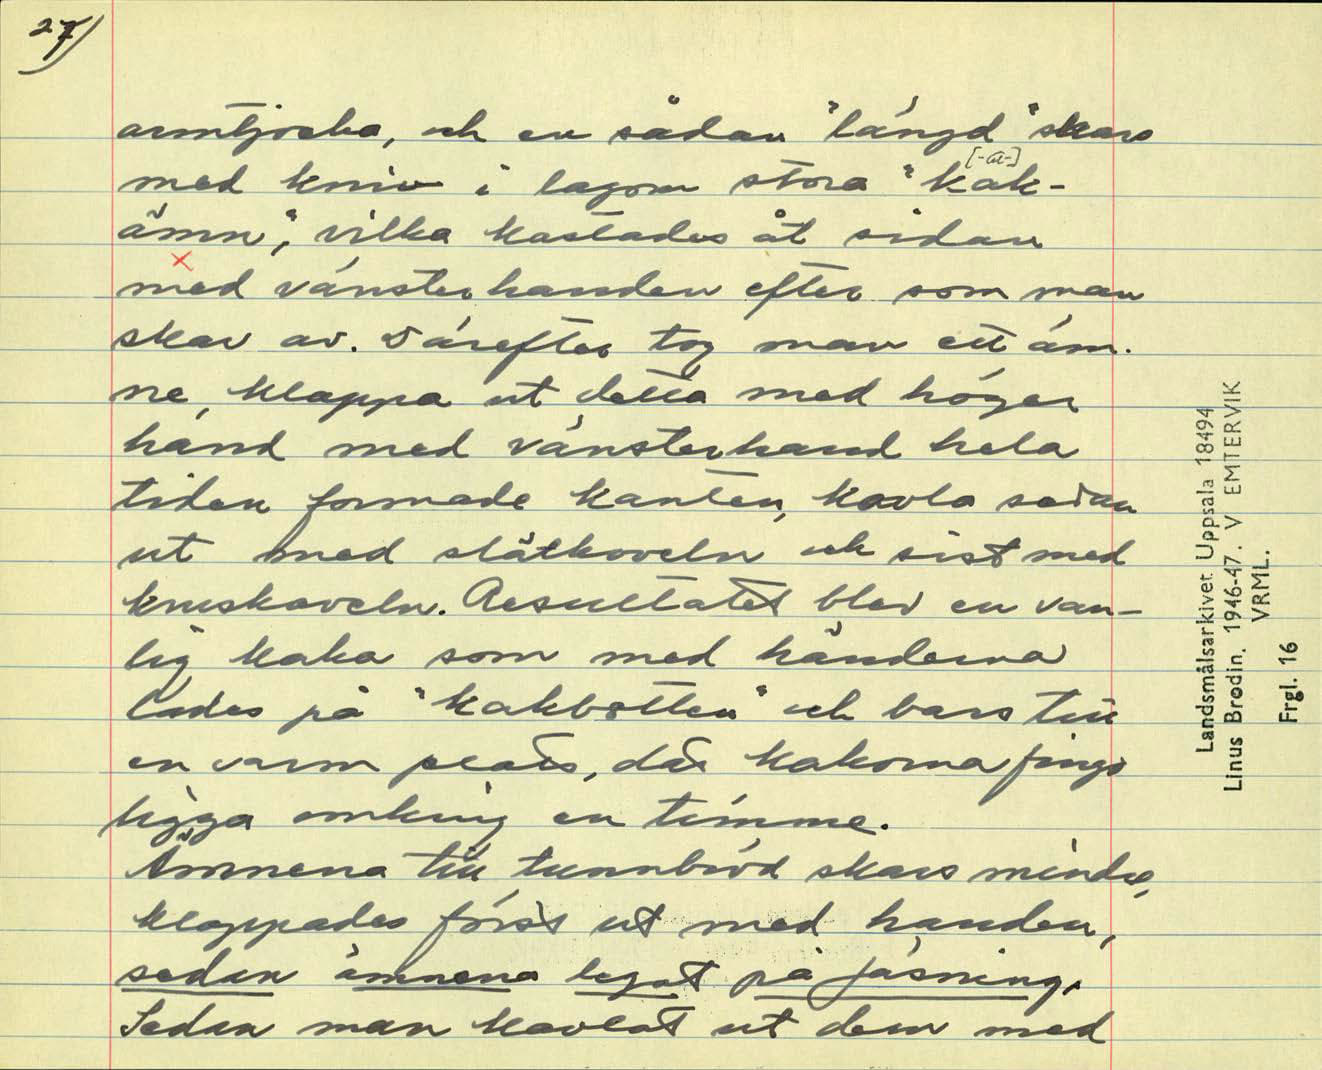 27)
armtjocka, och en sådan "längd" skars
med kniv i lagom stora "kak-
[-a-]
ämn", vilka kastades åt sidan
med vänsterhanden efter som man
skar av. Därefter tog man ett äm-
ne, klappa ut detta med höger
hand med vänsterhand hela
tiden formade kanten, kavla sedan
ut med slätkaveln och sist med
kruskaveln. Resultatet blev en van-
lig kaka som med händerna
lades på "kakbotten" och bars till
en varm plats, där kakorna fingo
ligga omkring en timme.
Ämnena till tunnbröd skars mindre,
klappades först ut med handen,
sedan ämnena legat på jäsning.
Sedan man kavlat ut dem med
Landsmålsarkivet Uppsala 18494
Linus Brodin. 1946-47. V EMTERVIK
VRML.
Frgl. 16